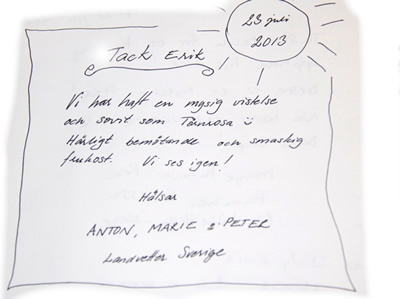 23 juli
2013
Tack Erik
Vi har haft en mysig vistelse
och sovit som Törnrosa
Härligt bemötande och smaskig
frukost. Vi ses igen!
Hälsar
ANTON, MARIE & PETER
Landvetter Sverige